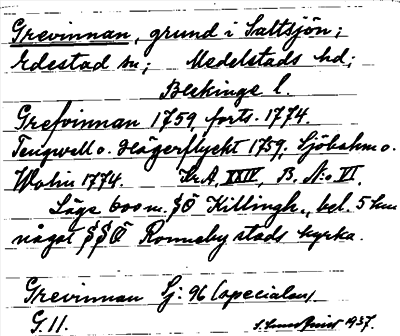 Grevinnan, grund i Saltsjön;
Edestad sn; Medelstads hd;
Blekinge l.
Grefvinnan 1759, forts. 1774.
Tengwell o. Hägerflycht 1759, Sjöbohm o.
Wolin 1774. Kr.A, XXIV, B, N:o VI.
Läge 600 m. SÖ Killingh., bel. 5 km
något SSÖ Ronneby stads kyrka.
Grevinnan Sj: 96 (specialen)
G. 11. 1937.